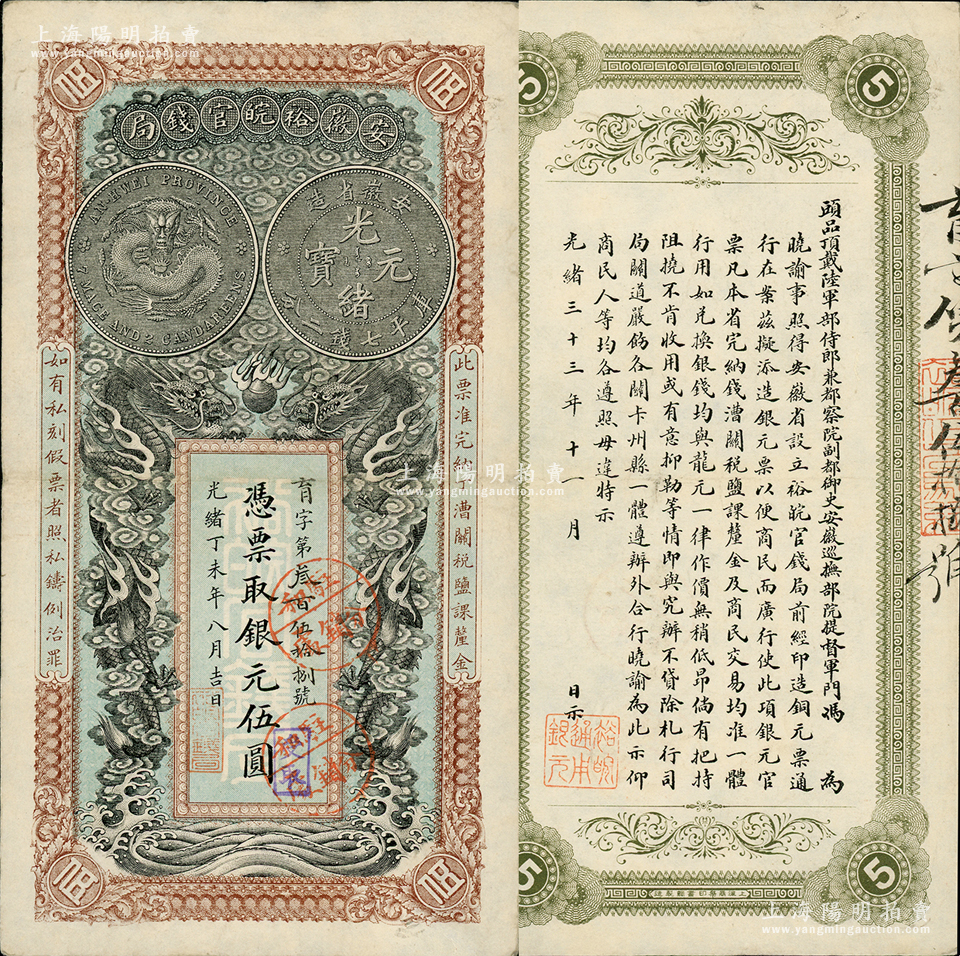 上海陽明拍賣
www.yangmingauction.com
伍
伍
安徽裕皖官錢局
AN-HWEI PROVINCE
7 MACE AND 2 CANDAREENS
安徽省造
光緒元寶
庫平七錢二分
此票准完納錢漕關稅鹽課釐金
如有私刻假票者照私鑄例治罪
育字第叁百伍拾捌號
憑票取銀元伍圓
光緒丁未年八月吉日
伍
伍
上海陽明拍賣
www.yangmingauction.com
5
5
頭品頂戴陸軍部侍郎兼都察院副都御史安徽巡撫部院提督軍門馮 為
曉諭事照得安徽省設立裕皖官錢局前經印造銅元票通
行在案茲擬添造銀元票以便商民而廣行使此項銀元官
票凡本省完納錢漕關稅鹽課釐金及商民交易均准一體
行用如兌換銀錢均與龍元一律作價無稍低昂倘有把持
阻撓不肯收用或有意抑勒等情即與究辦不貸除札行司
局關道嚴飭各關卡州縣一體遵辦外合行曉諭為此示仰
商民人等均各遵照毋違特示
光緒三十三年十一月 日示
裕皖
通用
銀元
5
5
上海陽明拍賣
www.yangmingauction.com